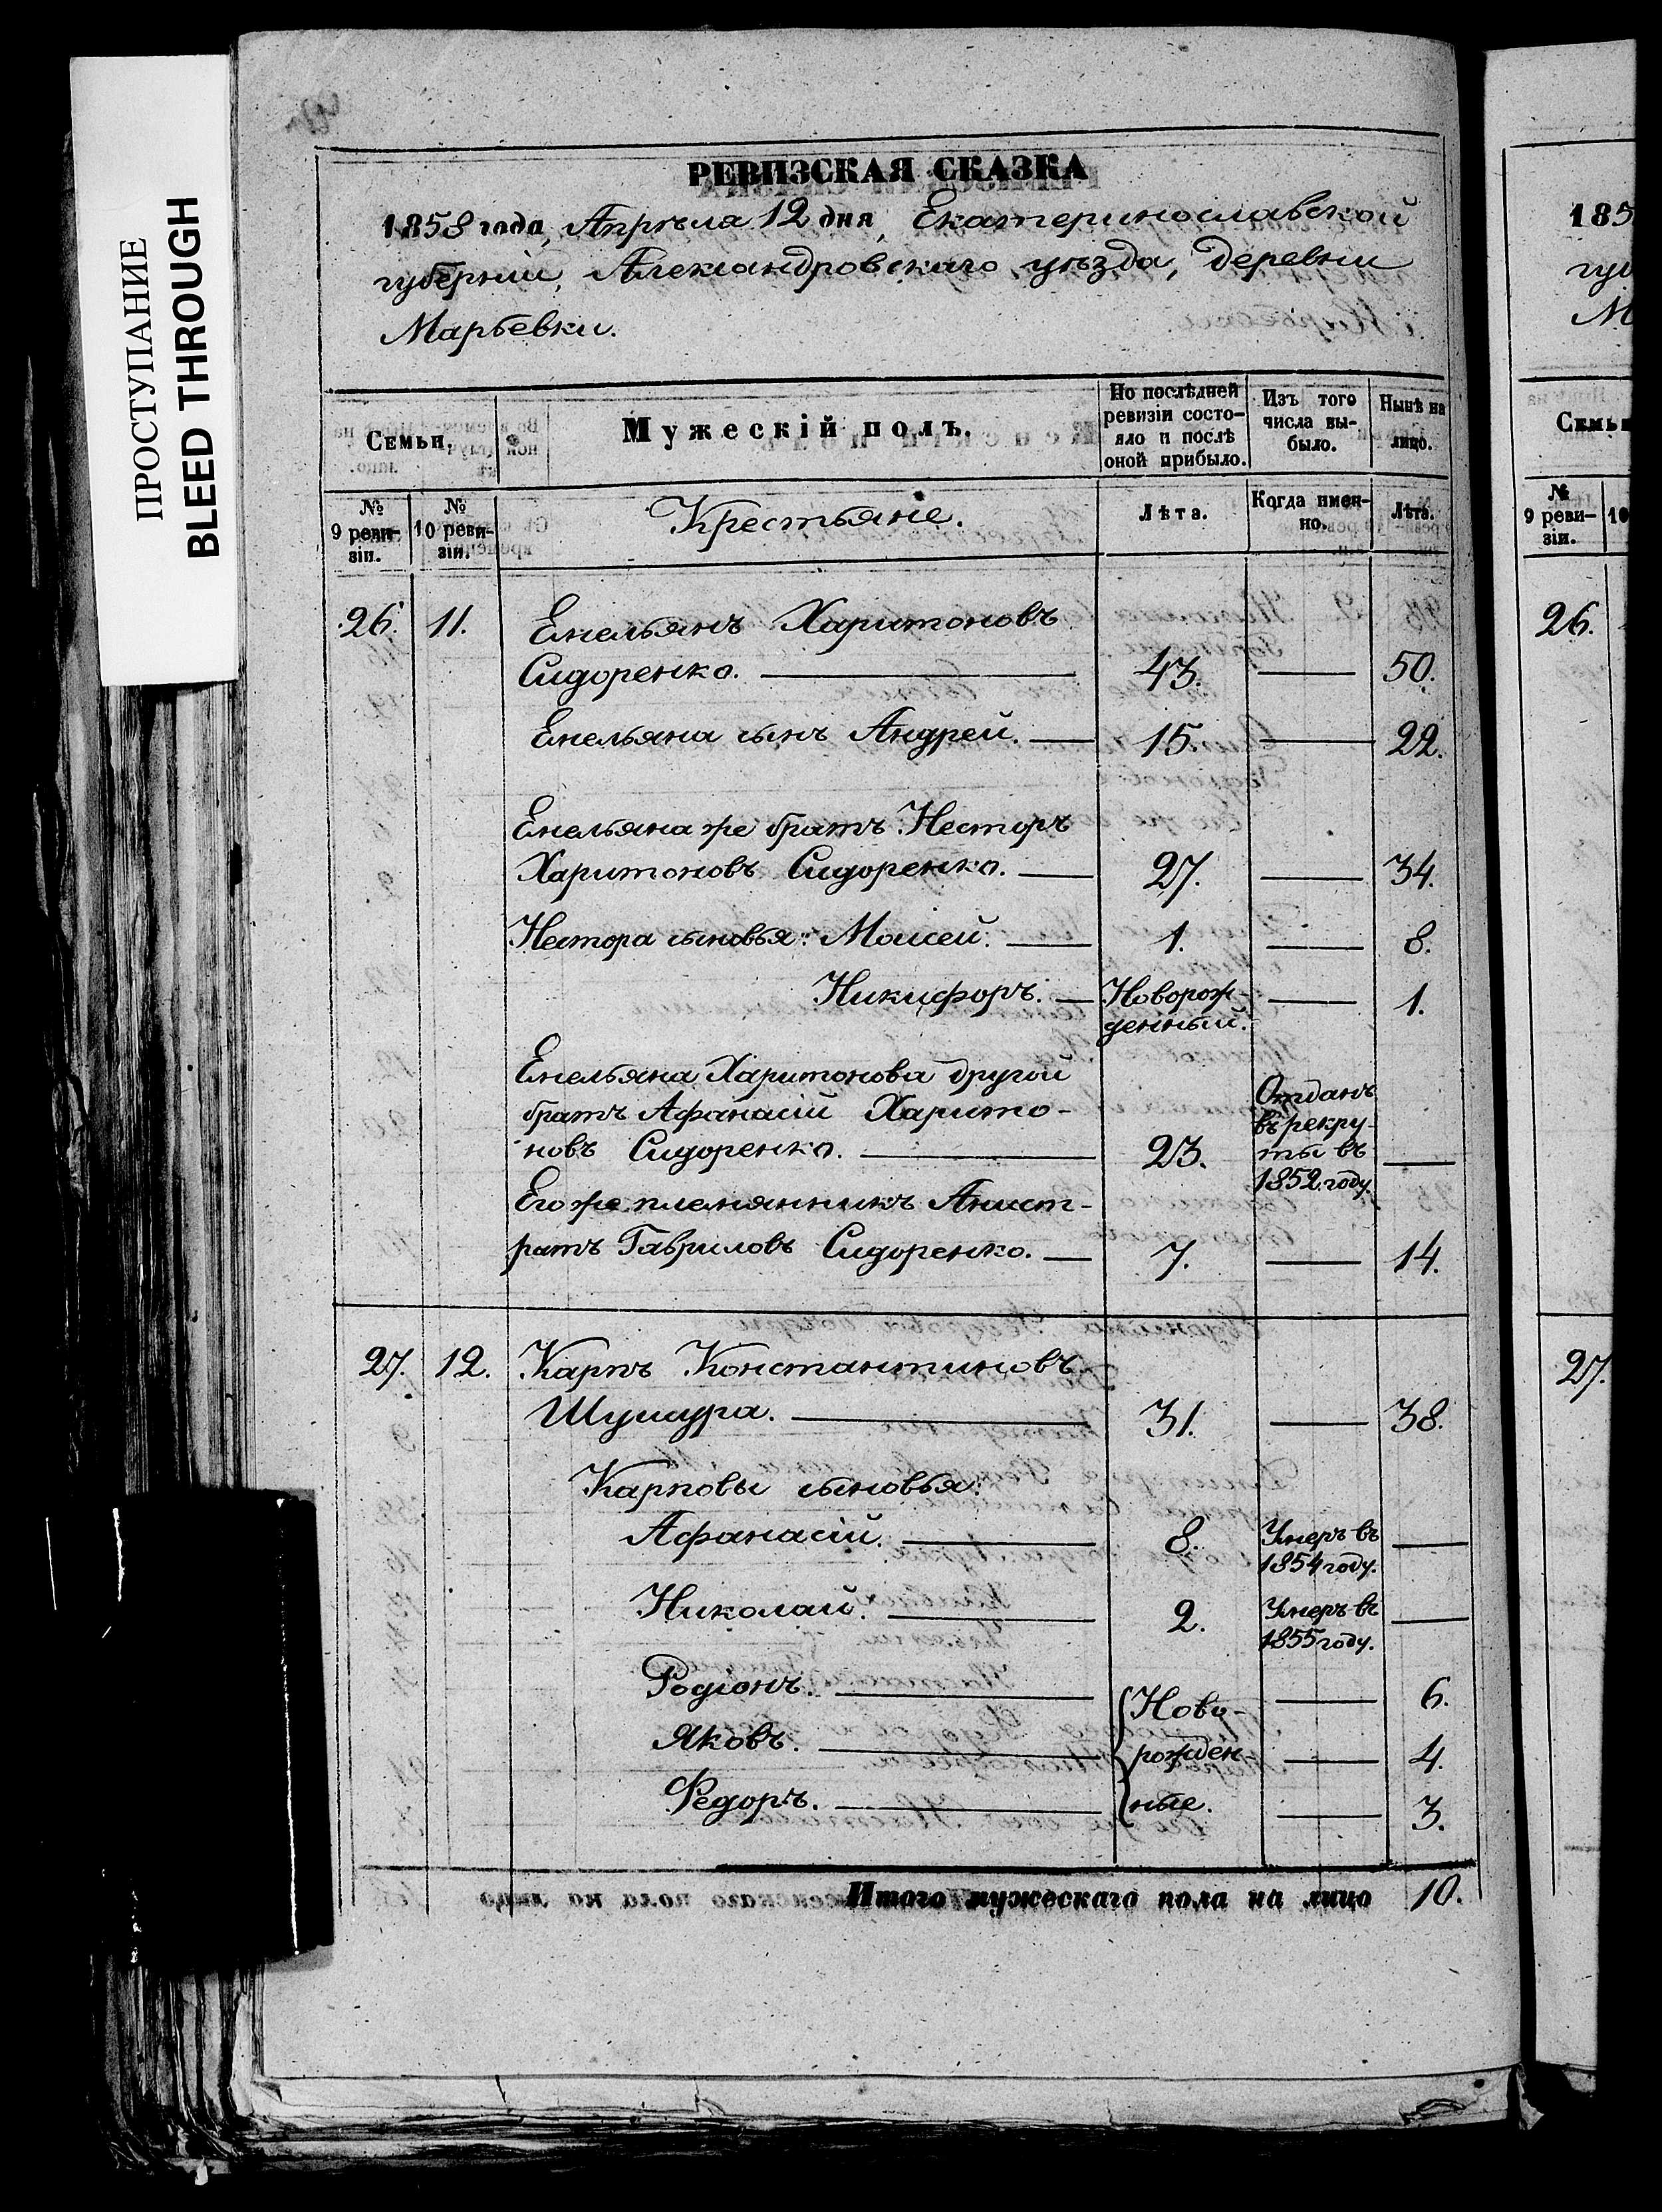 ПРОСТУПАНИЕ
BLEED THROUGH
РЕВИЗСКАЯ СКАЗКА
1858 года, Апрѣля 12 дня, Екатеринославской
губерніи, Александровскаго уѣзда, деревни
Марьевки.
Семьи.
Мужескій полъ.
По послѣдней ревизіи состо-
яло и послѣ
оной прибыло.
Изъ того
числа вы-
было.
Нынѣ на
лицо.
№
9 реви-
зіи.
№
10 реви-
зіи.
Крестьяне.
Лѣта.
Когда имен-
но.
Лѣта.
26. 11. Емельянъ Харитоновъ
Сидоренко. — 43. — 50.
Емельяна сынъ Андрей. — 15. — 22.
Емельяна же братъ Несторъ
Харитоновъ Сидоренко. — 27. — 34.
Нестора сыновья: Моисей. — 1. — 8.
Никифоръ. — Новорож- — 1.
денный.
Емельяна Харитонова другой
братъ Афанасій Харито-
новъ Сидоренко. — 23. —
Отданъ
въ рекру-
ты въ
1852 году.
Его же племянникъ Анист-
ратъ Гавриловъ Сидоренко. — 7. — 14.
27. 12. Карпъ Константиновъ
Шушура. — 31. — 38.
Карповы сыновья:
Афанасій. — 8. Умеръ въ —
1854 году.
Николай. — 2. Умеръ въ —
1855 году.
Родіонъ. — Ново- — 6.
Яковъ. — рожден- — 4.
Федоръ. — ные. — 3.
Итого мужескаго пола на лицо 10.
185
губ
М
Семьи
№
9 реви-
зіи.
10
26.
27.